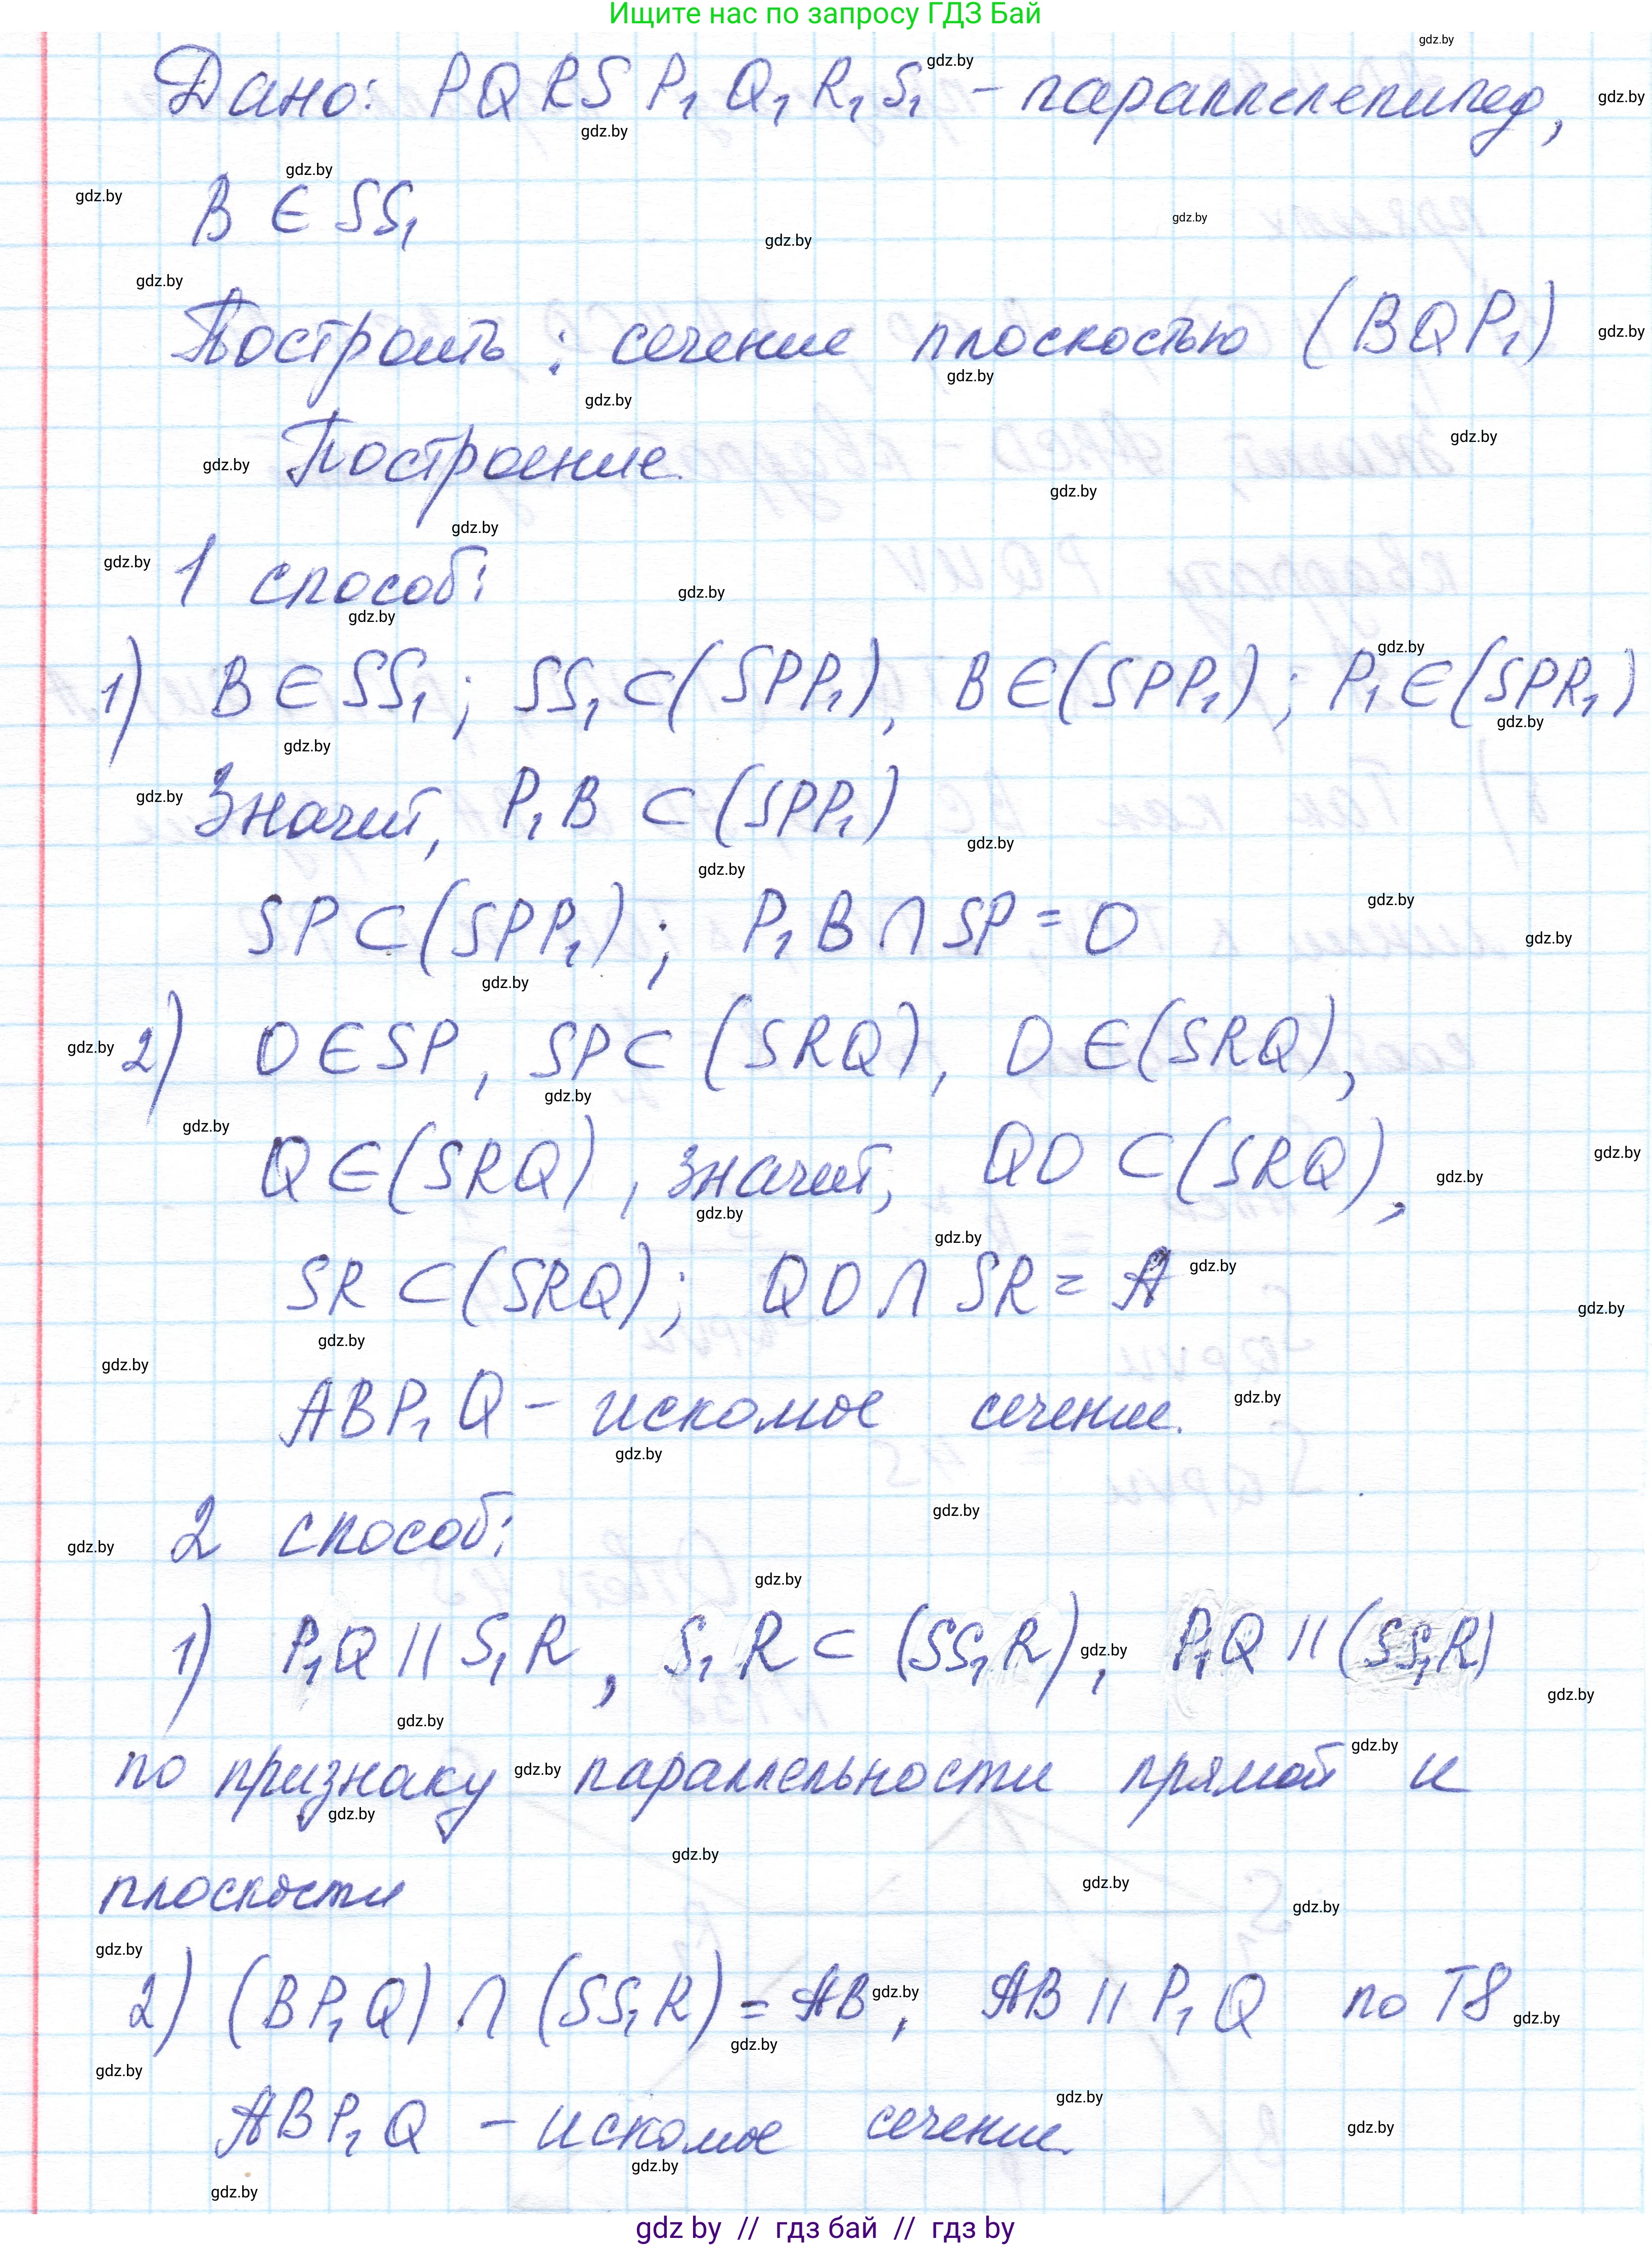 Ищите нас по запросу ГДЗ Бай
Дано: PQRSP₁Q₁R₁S₁ – параллелепипед,
B ∈ SS₁
Построить: сечение плоскостью (BQP₁)
Построение.
1 способ:
1) B ∈ SS₁; SS₁ ⊂ (SPP₁), B ∈ (SPP₁); P₁ ∈ (SPR₁)
Значит, P₁B ⊂ (SPP₁)
SP ⊂ (SPP₁); P₁B ∩ SP = O
2) O ∈ SP, SP ⊂ (SRQ), O ∈ (SRQ),
Q ∈ (SRQ), значит, QO ⊂ (SRQ),
SR ⊂ (SRQ); QO ∩ SR = A
ABP₁Q – искомое сечение.
2 способ:
1) P₁Q || S₁R, S₁R ⊂ (SS₁R), P₁Q || (SS₁R)
по признаку параллельности прямой и
плоскости
2) (BP₁Q) ∩ (SS₁R) = AB, AB || P₁Q по Т8
ABP₁Q – искомое сечение.
gdz by // гдз бай // гдз by